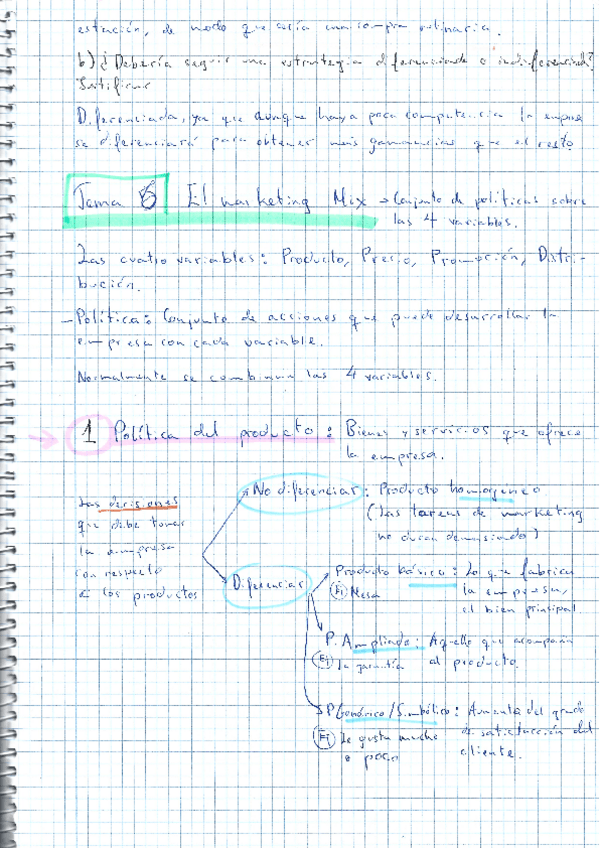 estación, de modo que sería una compra rutinaria.
b) ¿Debería seguir una estrategia diferenciada o indiferenciada?
Justificar
Diferenciada, ya que aunque haya poca competencia la empresa
se diferenciará para obtener más ganancias que el resto
Tema 6 El marketing Mix → Conjunto de políticas sobre
las 4 variables.
Las cuatro variables: Producto, Precio, Promoción, Distri-
bución.
- Política: Conjunto de acciones que puede desarrollar la
empresa con cada variable.
Normalmente se combinan las 4 variables.
→ 1 Política del producto: Bienes y servicios que ofrece
la empresa.
Las decisiones
que debe tomar
la empresa
con respecto
a los productos
No diferenciar: Producto homogeneo
(Las tareas de marketing
no duran demasiado)
Diferenciar
Producto básico: Lo que fabrica
la empresa,
el bien principal.
Ej Mesa
P. Ampliado: Aquello que acompaña
al producto.
Ej La garantía
P Genérico/Simbólico: Aumenta del grado
de satisfacción del
cliente.
Ej Le gusta mucho
o poco